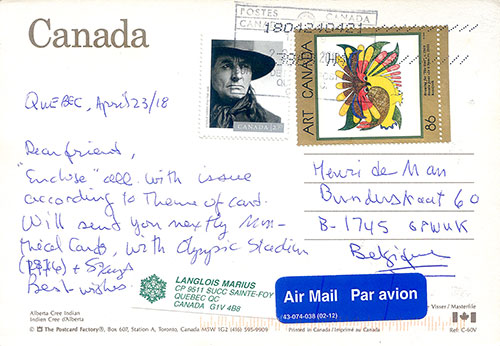 Canada
POSTES
CANADA
CANADA
POST
1804240421
CANADA
ART CANADA
86
QUEBEC, April 23/18
Dear friend,
"Enclose" all with issue
according to Theme of card.
Will send you nextly Mon-
treal Cards, with Olympic Stadium
(1976) +
Best wishes
Henri de Man
60
B-1745
Belgique
LANGLOIS MARIUS
CP 9511 SUCC SAINTE-FOY
QUEBEC QC
CANADA G1V 4B8
Air Mail Par avion
43-074-038 (02-12)
Alberta-Cree Indian
Indien Cree d'Alberta
Visser / Masterfile
© The Postcard Factory®, Box 607, Station A, Toronto, Canada M5W 1G2 (416) 595-9909
Printed in Canada/Imprimé au Canada
Ref: C-60V